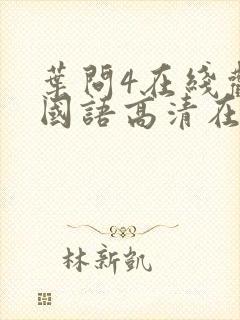 葉問4在綫
國語高清在
林新凱